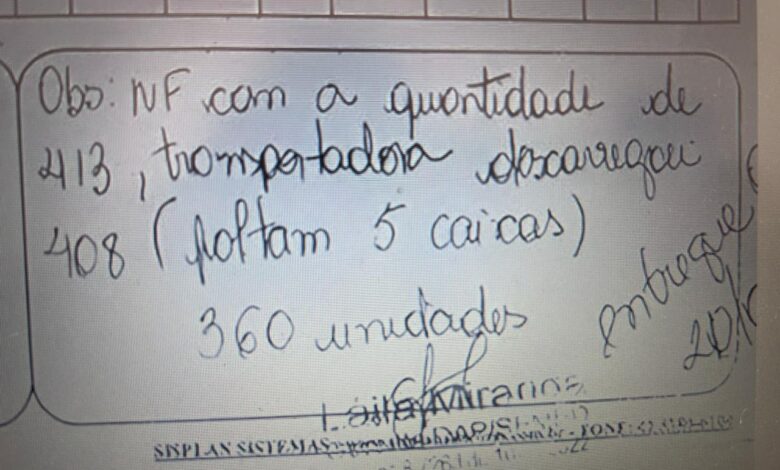 Obs: NF com a quantidade de
413, transportadora descarregou
408 (faltam 5 caixas)
360 unidades
entregue
20/
SISPLAN SISTEMAS